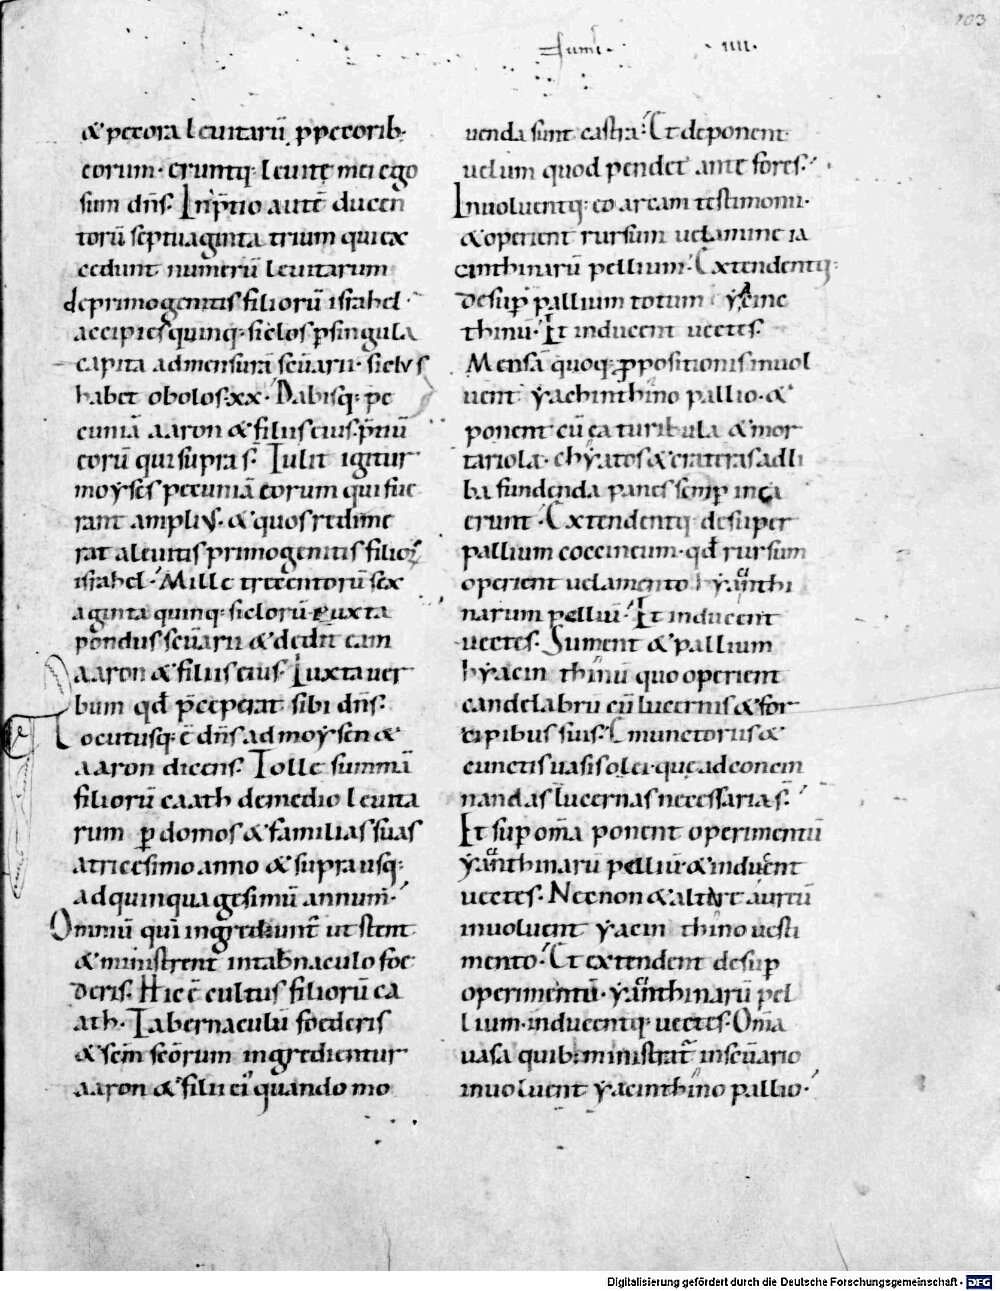 103
Numeri · IIII ·
& pecora leuitarū ꝓ pecorib·
eorum · eruntq: leuite mei ego
sum dñs. In p̄tio autē ducen
torū septuaginta trium qui ex
cedunt numerū leuitarum
de primogenitis filiorū israhel ·
accipies quinq· siclos ꝑ singula
capita ad mensurā scūarii · siclus
habet obolos xx · Dabisq: pe
cuniā aaron & filiis eius p̄tiū
eorū qui supra s̄. Tulit igitur
moẏses pecuniā eorum qui fue
rant amplius · & quos redime
rat a leuitis primogenitis filioꝝ
israhel · Mille trecentorū sex
aginta quinq: siclorū iuxta
pondus scūarii & dedit eam
aaron & filiis eius · Iuxta uer
bum qđ p̄ceperat sibi dñs.
Locutusq: ē dñs ad moẏsen &
aaron dicens. Tolle summā
filiorū caath de medio leuita
rum ꝑ domos & familias suas
a tricesimo anno & supra usq:
ad quinquagesimū annum ·
Omniū qui ingrediunt̄ ut stent
& ministrent in tab̄naculo foe
deris. Hic ē cultus filiorū ca
ath · Tabernaculū foederis
& sc̄m sc̄orum ingredientur
aaron & filii ei' quando mo
uenda sunt castra · Et deponent
uelum quod pendet ante fores ·
Inuoluentq: eo arcam testimonii ·
& operient rursum uelamine ia
cinthinarū pellium · Extendentq:
desuꝑ pallium totum ẏacinc
thinū · Et inducent uectes.
Mensā quoq· ꝓpositionis inuol
uent ẏachinthino pallio · &
ponent cū ea turibula & mor
tariola · chẏatos & crateras ad li
ba fundenda panes semꝑ in ea
erunt · Extendentq: desuper
pallium coccineum · qđ rursum
operient uelamento hẏacinthi
narum pelliū · Et inducent
uectes · Sument & pallium
hẏacinthinū quo operient
candelabrū cū lucernis & for
cipibus suis · Emunctoriis &
cunctis uasis olei · que ad concin
nandas lucernas necessaria s̄.
Et suꝑ om̄a ponent operimentū
ẏacinthinarū pelliū & inducent
uectes · Necnon & altare aureū
inuoluent ẏacinthino uesti
mento · Et extendent desuꝑ
operimentū · ẏacinthinarū pel
lium · inducentq: uectes · Om̄a
uasa quib: ministrat̄ in scūario
inuoluent ẏacinthino pallio ·
Digitalisierung gefördert durch die Deutsche Forschungsgemeinschaft - DFG